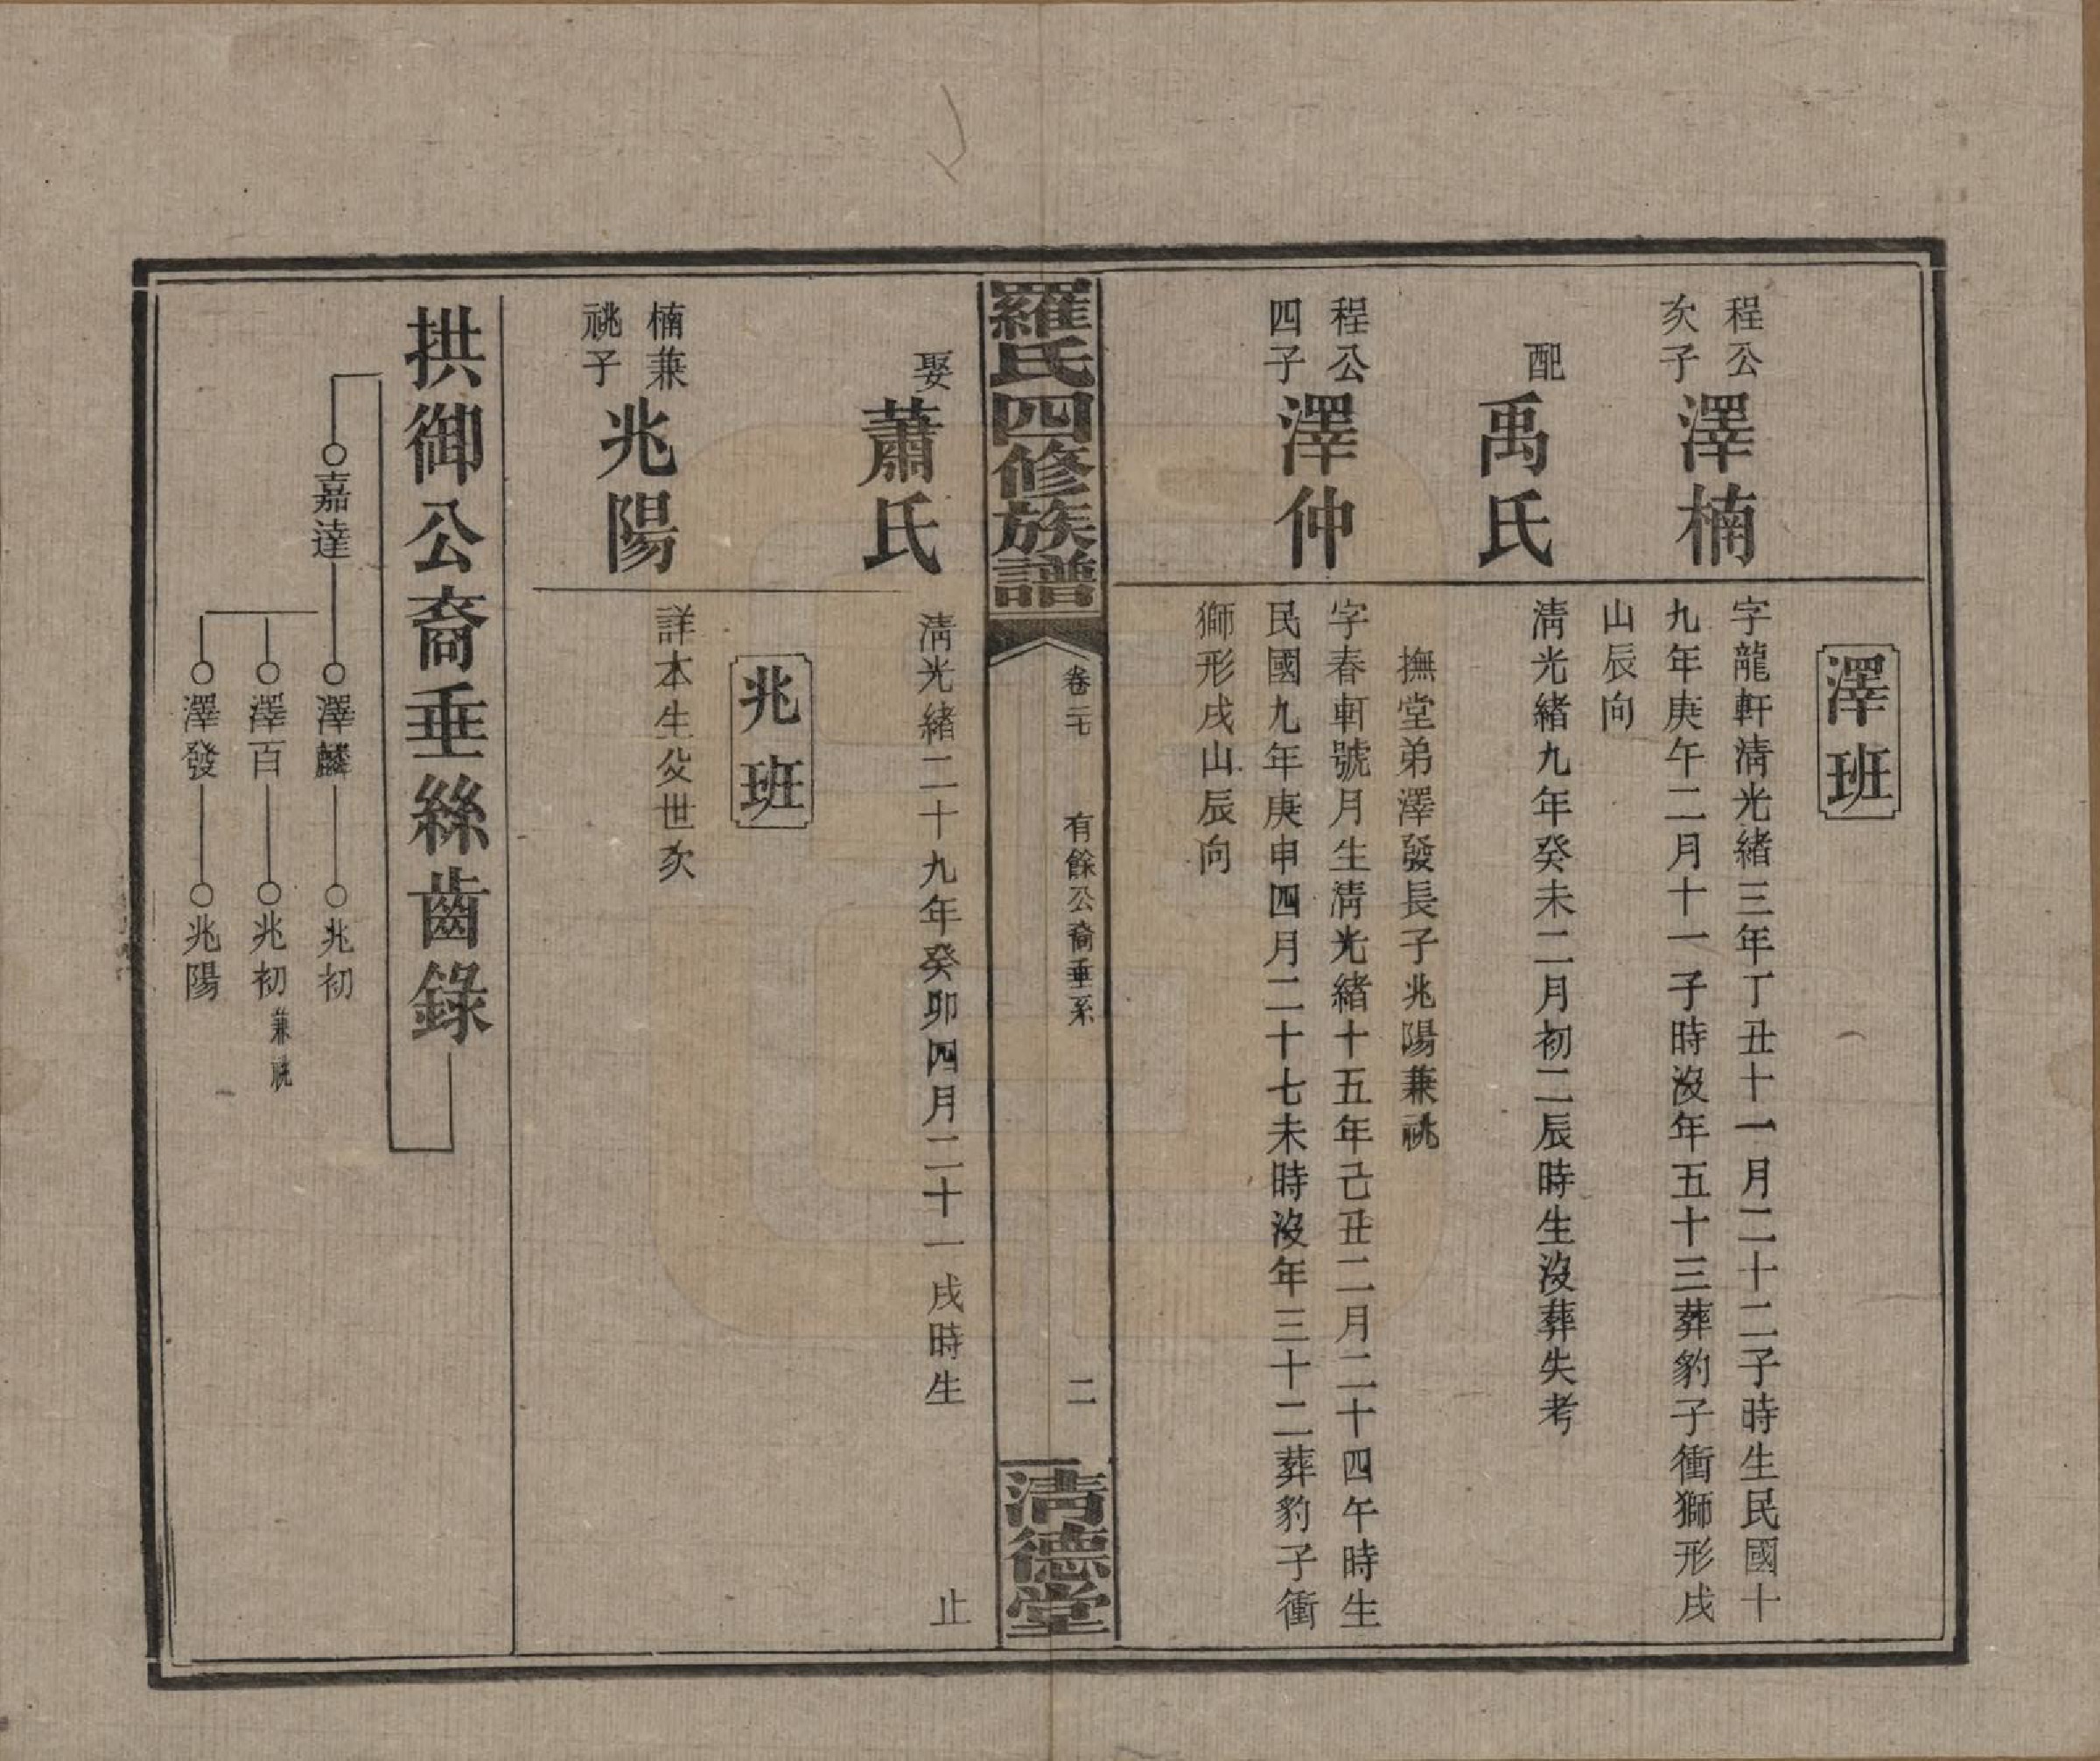 澤班
程公
次子
澤楠
字龍軒淸光緒三年丁丑十一月二十二子時生民國十
九年庚午二月十一子時沒年五十三葬豹子衝獅形戌
山辰向
配
禹氏
淸光緒九年癸未二月初二辰時生沒葬失考
撫堂弟澤發長子兆陽兼祧
程公
四子
澤仲
字春軒號月生淸光緒十五年己丑二月二十四午時生
民國九年庚申四月二十七未時沒年三十二葬豹子衝
獅形戌山辰向
羅氏四修族譜
卷二七
有餘公裔垂系
二
淸德堂
娶
蕭氏
淸光緒二十九年癸卯四月二十一戌時生
止
兆班
楠兼
祧子
兆陽
詳本生父世次
拱御公裔垂絲齒錄
嘉達
澤麟
兆初
澤百
兆初
兼祧
澤發
兆陽